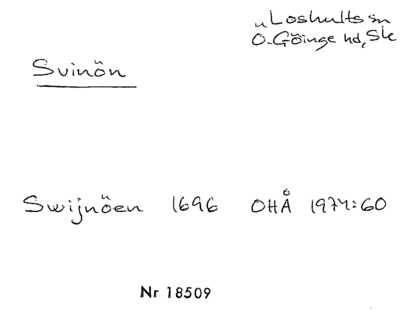 „Loshults sn
Ö. Göinge hd, Sk
Svinön
Swijnöen 1696 OHÅ 1974:60
Nr 18509